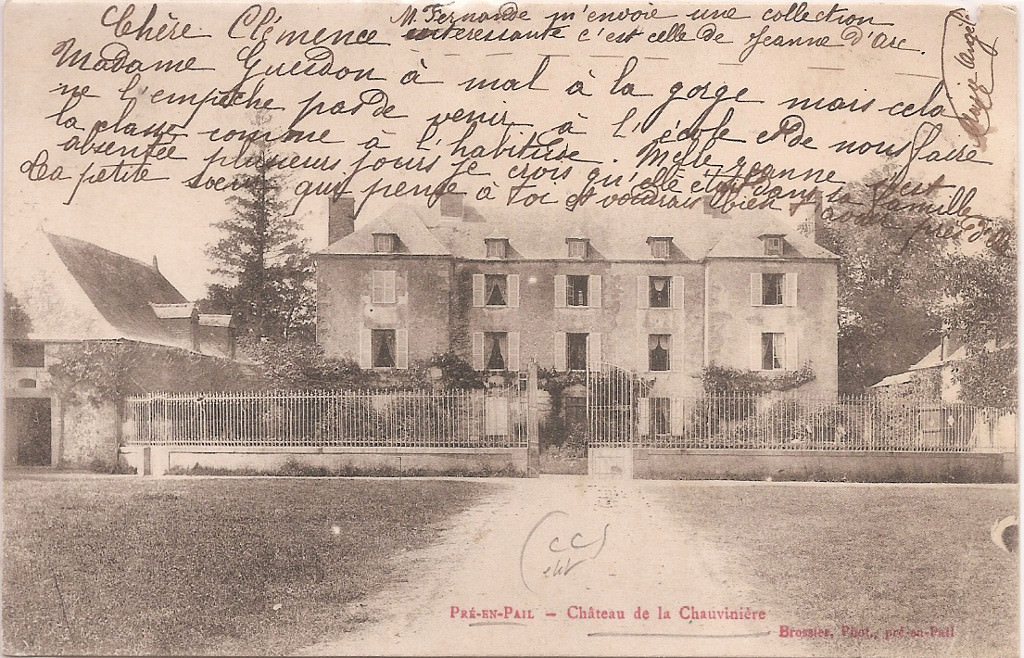 M. Fernande m'envoie une collection
Chère Clémence interessante c'est celle de Jeanne d'Arc.
Madame Guesdon à mal à la gorge mais cela
ne l'empêche pas de venir à l'école et de nous faire
la classe comme à l'habitude. Melle Jeanne s'est
absentée plusieurs jours je crois qu'elle était dans sa famille
La petite soeur qui pense à toi et voudrais bien t'avoir près d'elle
Marie Angèle
CC
PRÉ-EN-PAIL – Château de la Chauvinière
Brossier, Phot., pré-en-Pail